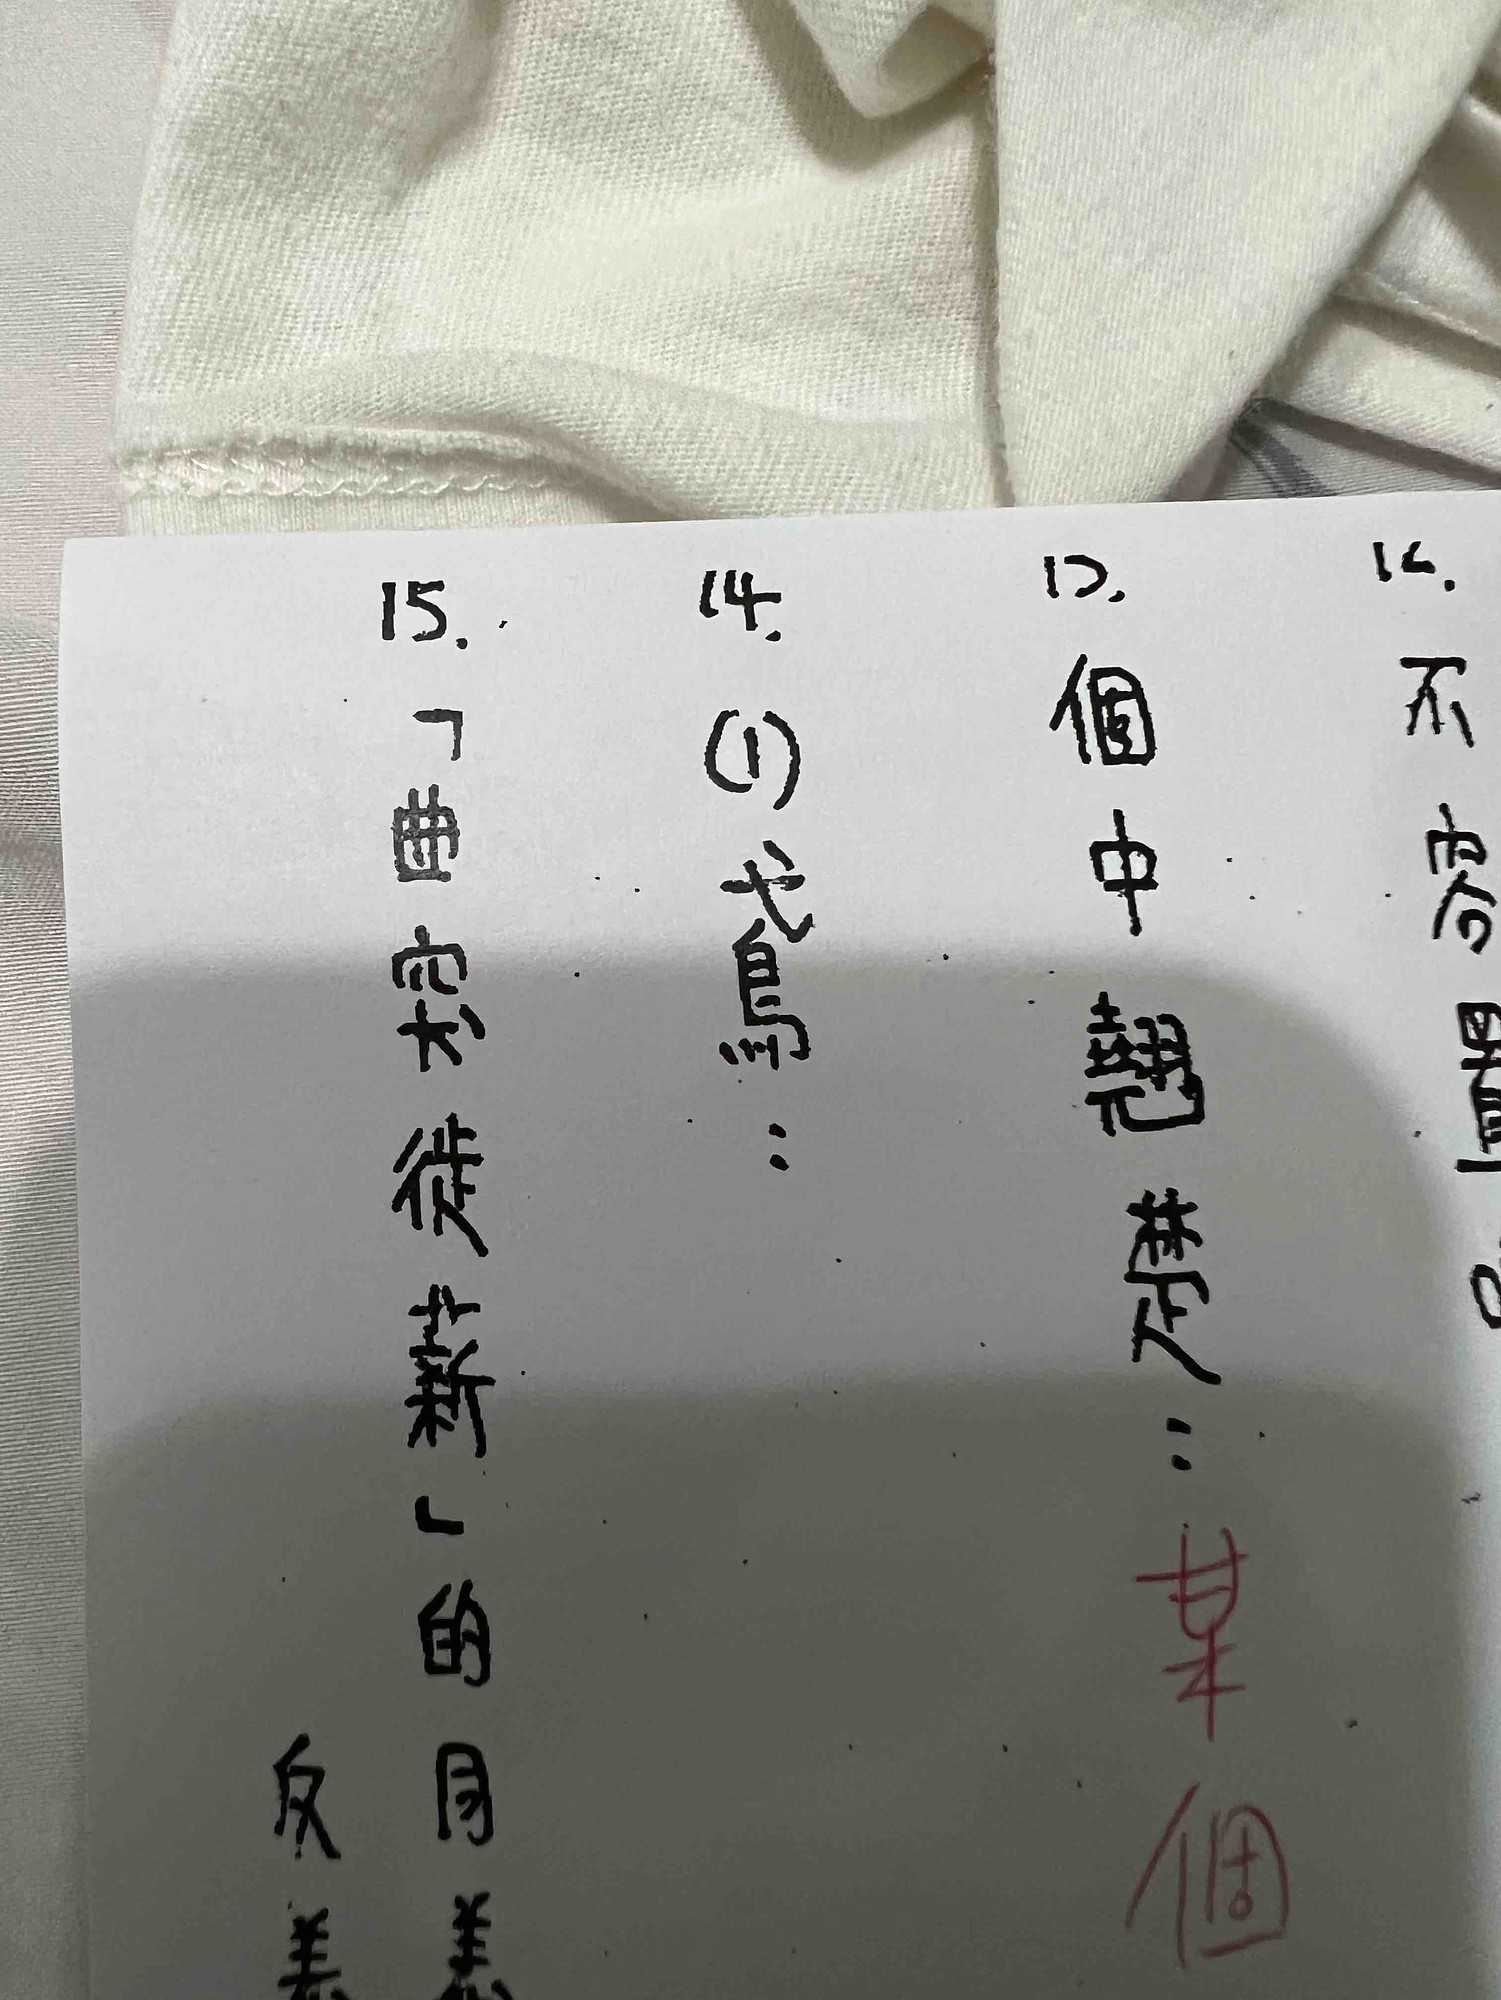 12.不容置
13.個中翹楚：某個
14.(1)弋鳥：
15.「曲突徙薪」的同義
反義